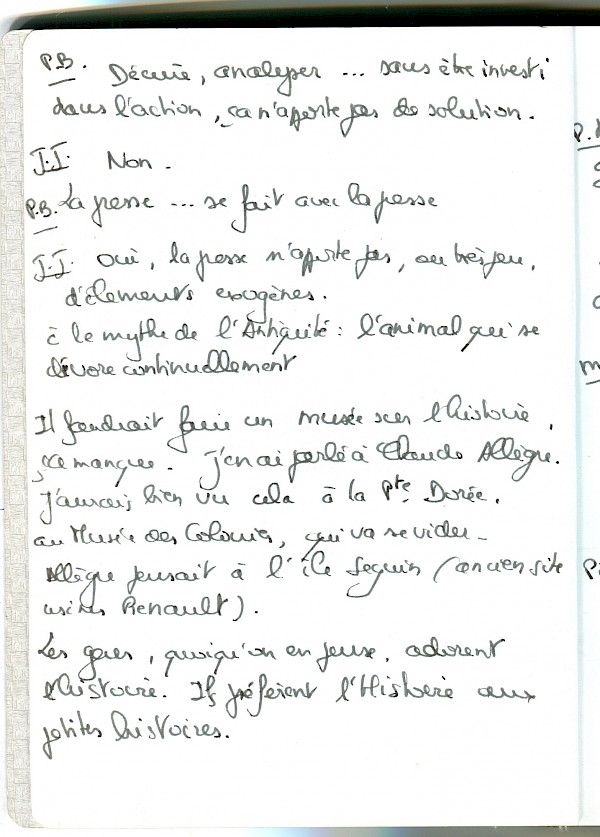 P.B. Décrire, analyser ... sans être investi
dans l'action, ça n'apporte pas de solution.
J.J. Non.
P.B. La presse ... se fait avec la presse
J.J. Oui, la presse n'apporte pas, ou très peu,
d'éléments exogènes.
c le mythe de l'Antiquité : l'animal qui se
dévore continuellement
Il faudrait faire un musée sur l'histoire,
ça manque. J'en ai parlé à Claude Allègre.
J'aurais bien vu cela à la Pte Dorée,
au Musée des Colonies, qui va se vider.
Allègre pensait à l'île Seguin (ancien site
usines Renault).
Les gens, quoiqu'on en pense, adorent
l'histoire. Ils préfèrent l'Histoire aux
petites histoires.